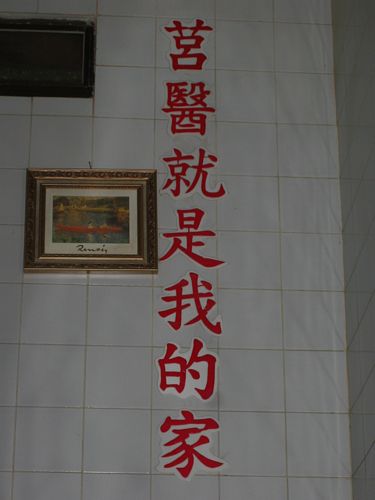 莒醫就是我的家
Renoir